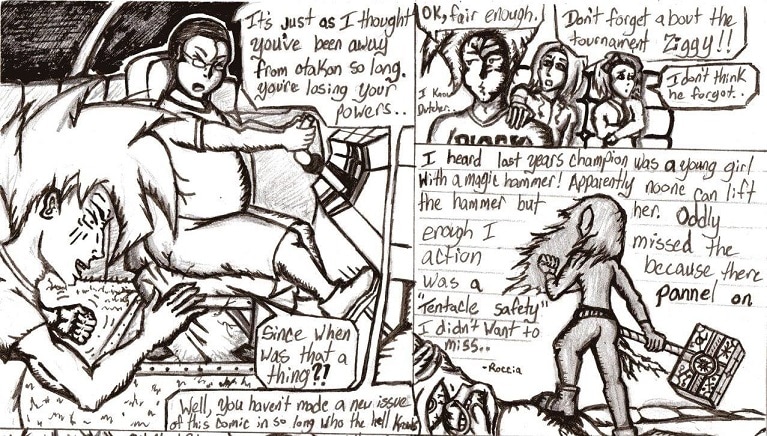 It's just as I thought
you've been away
from otakon so long.
you're losing your
powers..
Since when
was that a
thing?!
Well, you haven't made a new issue
of this comic in so long who the hell Knows
OK, fair enough.
Don't forget about the
tournament Ziggy!!
I don't think
he forgot..
I Know
Dutcher..
I heard last years champion was a young girl
With a magic hammer! Apparently noone can lift
the hammer but her. Oddly
enough I missed the
action because there
was a pannel on
"tentacle safety"
I didn't want to
miss..
-Roccia